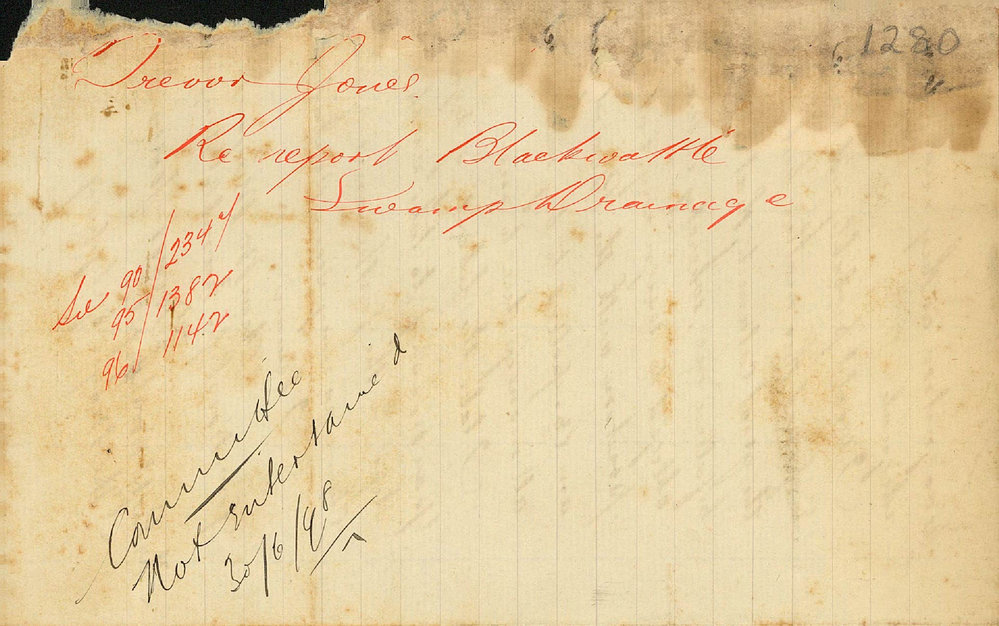 1280
Trevor Jones
Re report Blackwattle
Swamp Drainage
See 90/2347
95/1382
96/1142
Committee
Not Entertained
30/6/98